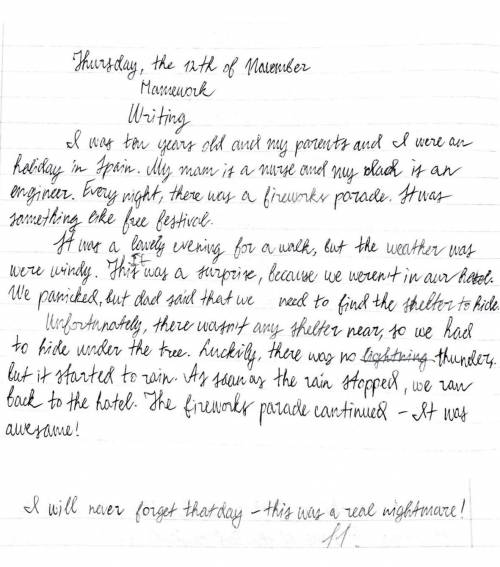 Thursday, the 12th of November
Homework
Writing
I was ten years old and my parents and I were on
holiday in Spain. My mom is a nurse and my dad is an
engineer. Every night, there was a fireworks parade. It was
something like free festival.
It was a lovely evening for a walk, but the weather was
were windy. This It was a surprise, because we weren't in our hotel.
We panicked, but dad said that we need to find the shelter to hide.
Unfortunately, there wasn't any shelter near, so we had
to hide under the tree. Luckily, there was no lightning thunders.
but it started to rain. As soon as the rain stopped, we ran
back to the hotel. The fireworks parade continued – It was
awesome!
I will never forget that day – this was a real nightmare!
11.